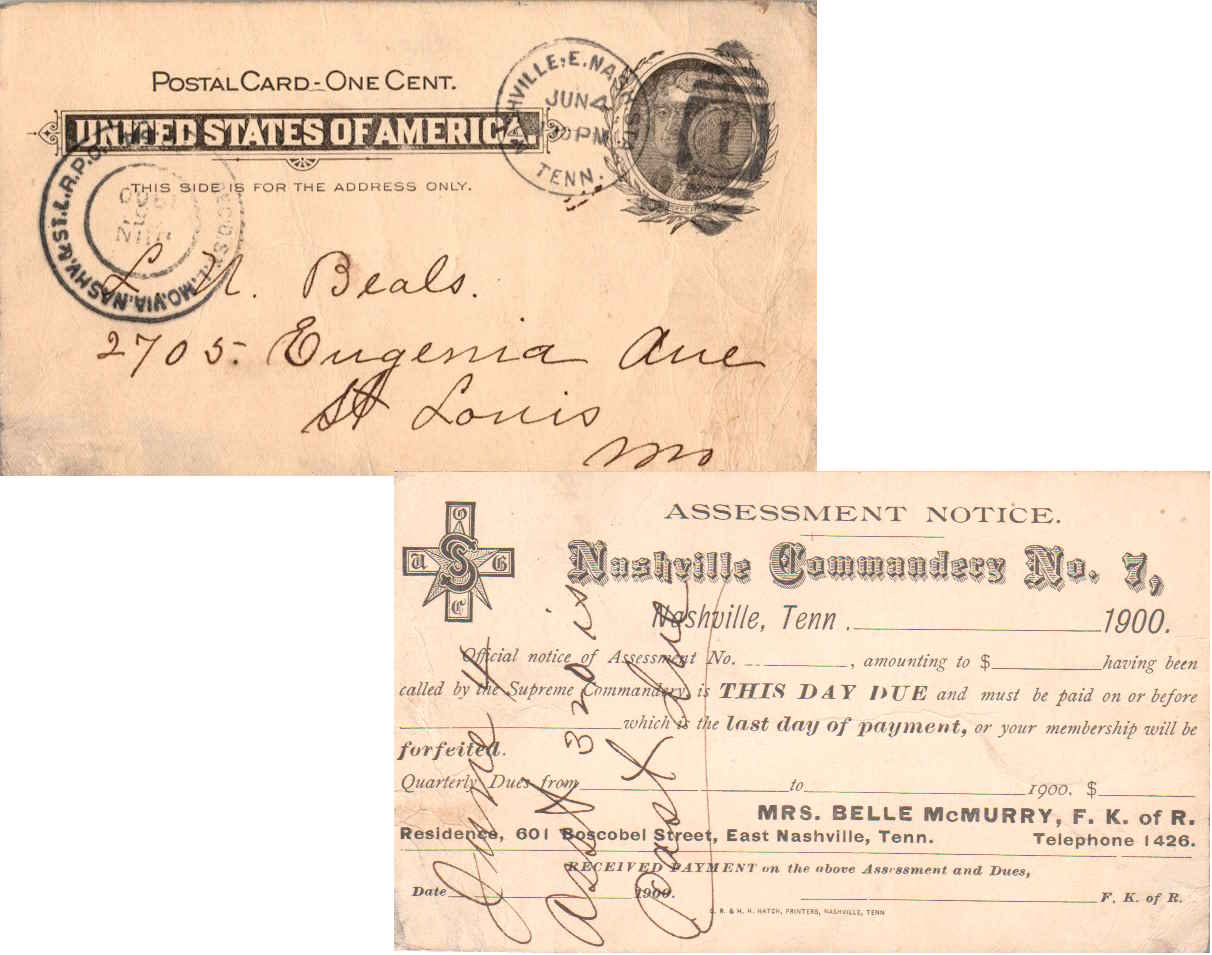 POSTAL CARD-ONE CENT.
UNITED STATES OF AMERICA.
THIS SIDE IS FOR THE ADDRESS ONLY.
NASHVILLE, E. NASH. ST
JUN 4
PM
TENN.
1
ST. L. MO. VIA. NASHV. & ST. L. R.P.O.
JUN
1900
L N. Beals.
2705. Eugenia Ave
St Louis
Mo
ASSESSMENT NOTICE.
U O G C
S
Nashville Commandery No. 7,
Nashville, Tenn. 1900.
Official notice of Assessment No. , amounting to $ having been
called by the Supreme Commandery, is THIS DAY DUE and must be paid on or before
which is the last day of payment, or your membership will be
forfeited.
Quarterly Dues from to 1900. $
MRS. BELLE McMURRY, F. K. of R.
Residence, 601 Boscobel Street, East Nashville, Tenn. Telephone 1426.
RECEIVED PAYMENT on the above Assessment and Dues,
Date 1900. F. K. of R.
. R. & H. H. HATCH, PRINTERS, NASHVILLE, TENN
June 4
Asst 320 is
Past due